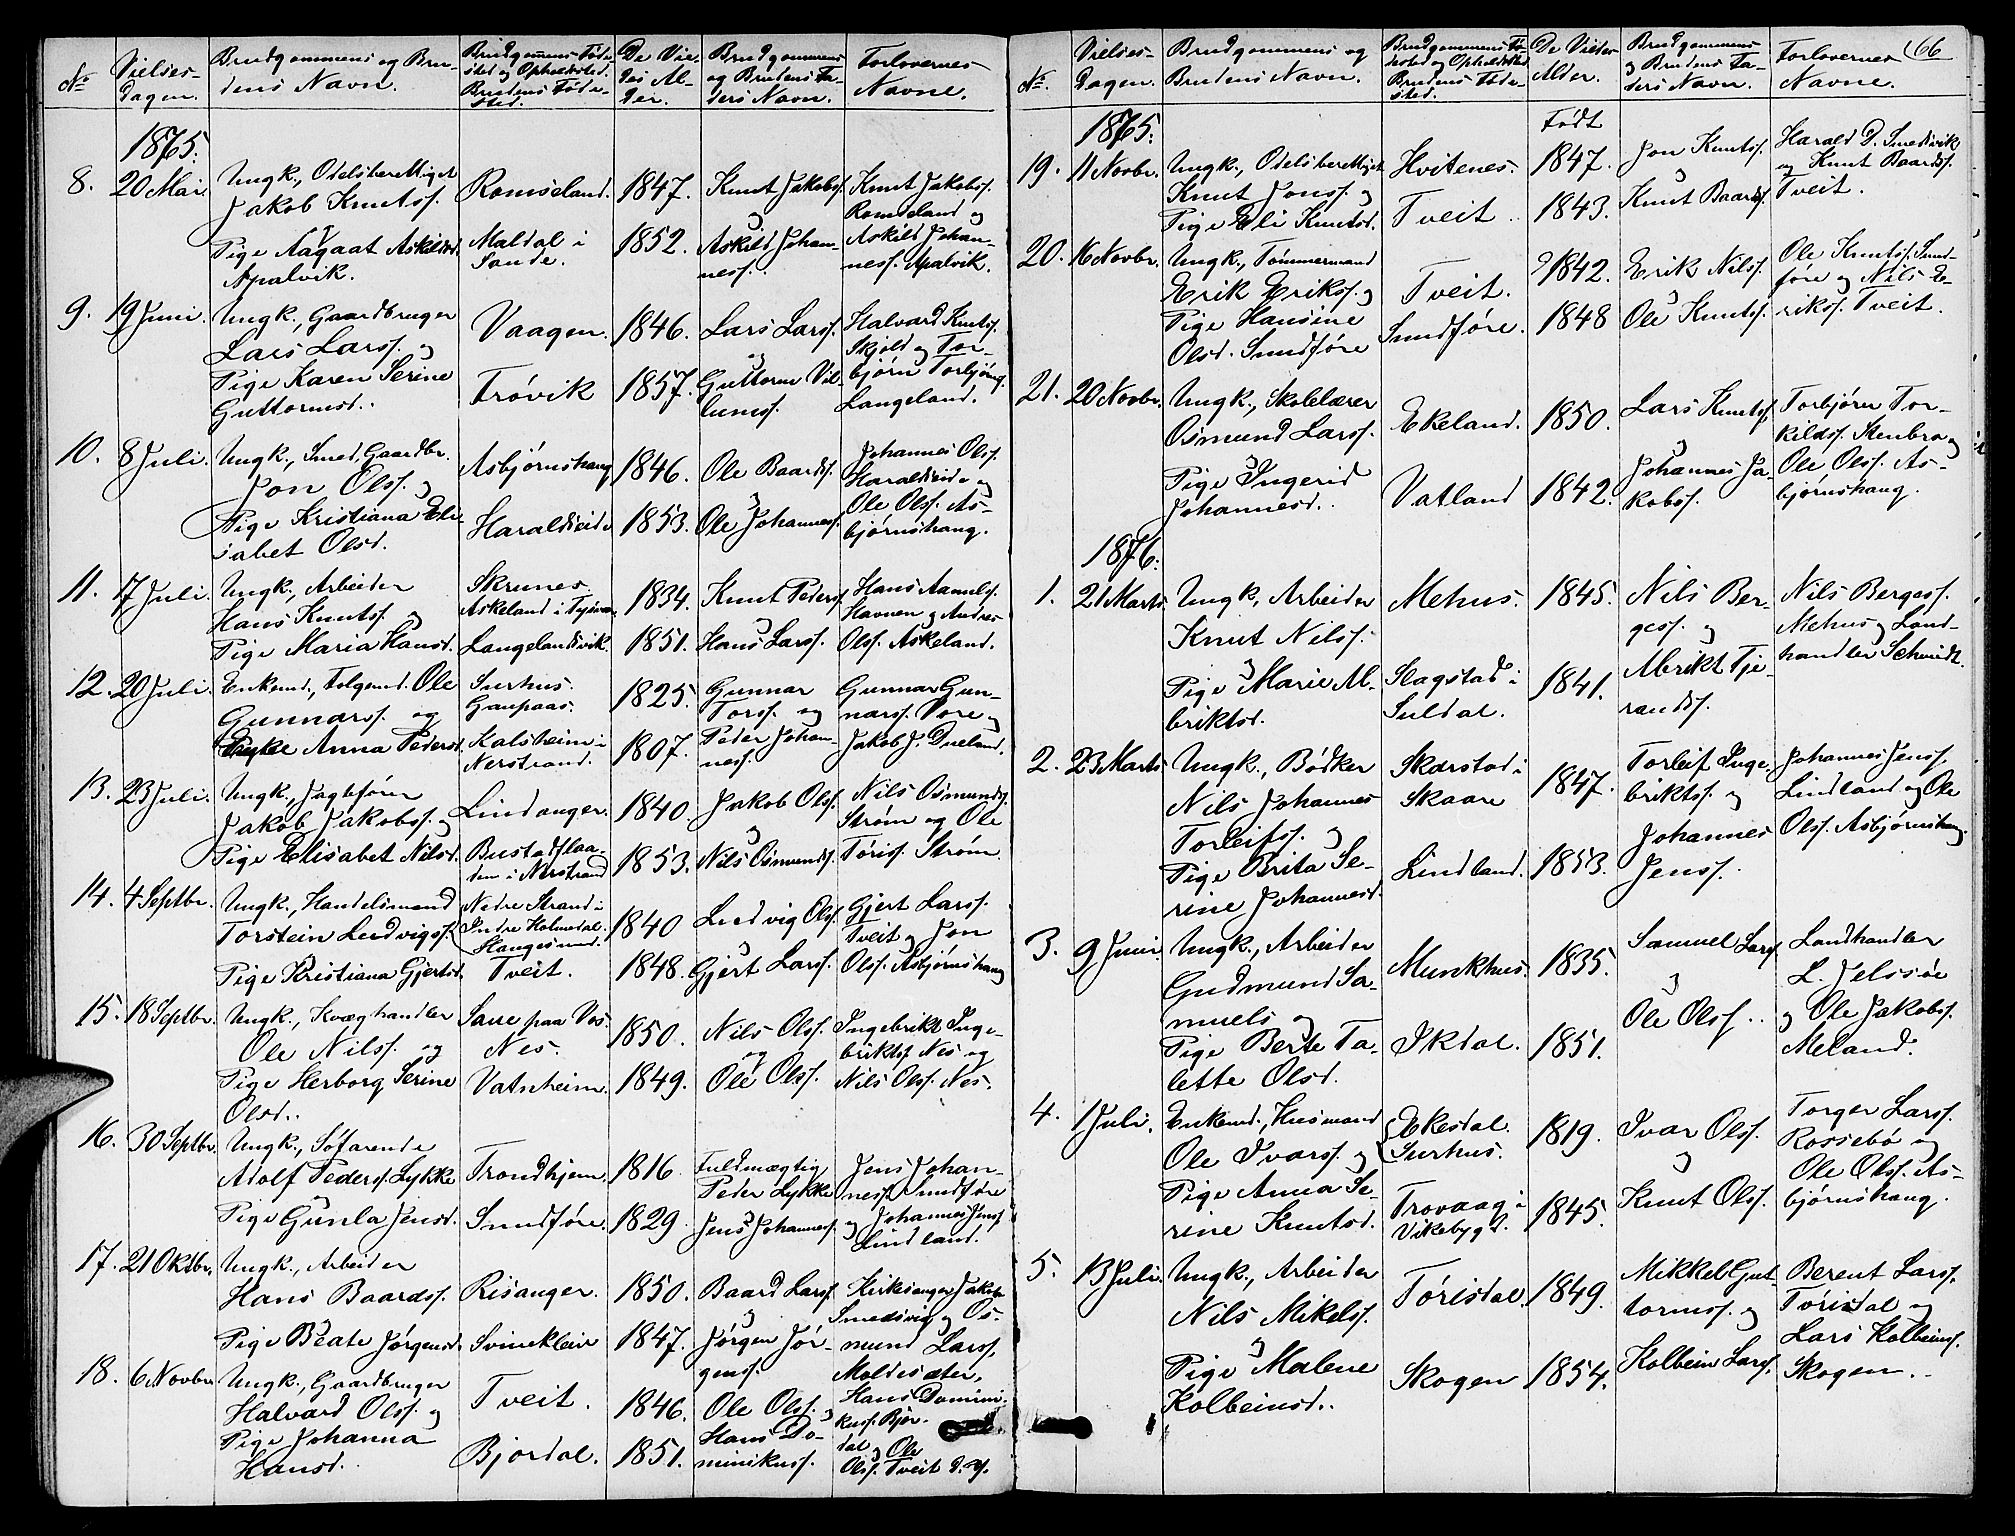 No
Vielses-
dagen.
Brudgommens og Bru-
dens Navn.
Brudgommens Føde-
sted og Opholdssted.
Brudens Føde-
sted.
De Vie-
des Al-
der.
Brudgommens
og Brudens Fa-
ders Navn.
Forlovernes
Navne.
1875.
8. 20 Mai.
Ungk., Odelsberettiget
Jakob Knutss.
og
Pige Aagaat Askildsd.
Apalvik.
Romseland.
Maldal i
Sande.
1847.
1852.
Knut Jakobs.
og
Askild Johan-
ness.
Knut Jakobss.
Romseland og
Askild Johan-
ness. Apalvik.
9. 19 Juni.
Ungk., Gaardbruger
Lars Larss. og
Pige Karen Serine
Guttormsd.
Vaagen.
Frøvik
1846.
1857.
Lars Larss.
og
Guttorm Vil-
lumss.
Halvard Knutss.
Skjold og Tor-
bjørn Torbjørns.
Langeland.
10. 8 Juli.
Ungk., Smed, Gaardbr.
Jon Olss. og
Pige Kristiana Eli-
sabet Olsd.
Asbjørnshaug
Haraldseide
1846.
1853.
Ole Baards.
og
Ole Johanness.
Johannes Olss.
Haraldseide og
Ole Olss. As-
bjørnshaug.
11. 17 Juli.
Ungk., Arbeider
Hans Knutss.
og
Pige Maria Hansd.
Skrunes
Askeland i Tysvær
Langelandsvik.
1834.
1851.
Knut Peders.
og
Hans Larss.
Hans Aamels.
Havnen og Andres
Olss. Askeland.
12. 20 Juli.
Enkemd., Folgemd. Ole
Gunnarss. og
Pige Anna Pedersd.
Surhus.
Gaupaas.
Kalsheim i
Nerstrand.
1825.
1807.
Gunnar
Torss. og
Peder Johan-
ness.
Gunnar Gun-
narss. Vore og
Jakob J. Dueland.
13. 23 Juli.
Ungk., Jagtefører
Jakob Jakobss. og
Pige Elisabet Nilsd.
Lindanger.
Bustadflaa-
ten i Nerstrand
1840
1853.
Jakob Olss.
og
Nils Osmunds.
Nils Osmunds.
Strøm og Ole
Tøriss. Strøm
14. 4 Septbr.
Ungk., Handelsmand
Torstein Ludvigss.
og
Pige Kristiana Gjertsd.
Nedre Strand i
Indre Holmedal.
Haugesund.
Tveit.
1840
1848.
Ludvig Olss.
Gjert Larss.
Gjert Larss.
Tveit og Jon
Olss. Asbjørnshaug
15. 18 Septbr.
Ungk., Kvæghandler
Ole Nilss. og
Pige Herborg Serine
Olsd.
Saue paa Vos.
Nes.
Vatnheim.
1850.
1849.
Nils Olss.
og
Ole Olss.
Ingebrikt Inge-
briktss Nes og
Nils Olss. Nes.
16. 30 Septbr.
Ungk., Søfarende
Adolf Pederss. Lykke
og
Pige Gunla Jensd.
Trondhjem.
Sundføre.
1816
1829.
Fuldmægtig
Peder Lykke
og
Jens Johanness.
Jens Johan-
ness. Sundføre
og Johannes Jenss.
Lindland.
17. 21 Oktbr.
Ungk., Arbeider
Hans Baardss.
og
Pige Beate Jørgensd.
Risanger.
Svinekleiv
1850.
1847.
Baard Larss.
og
Jørgen Jør-
gens.
Kirkesanger Jakob
Smedsvig og Os-
mund Larss.
Moldesæter.
18. 6 Novbr.
Ungk., Gaardbruger
Halvard Olss. og
Pige Johanna
Hansd.
Tveit.
Bjordal.
1846.
1851.
Ole Olss. og
Hans Do-
minikuss.
Hans Domini-
kuss. Bjor-
dal og Ole
Olss. Tveit d. y.
No.
Vielses-
Dagen.
Brudgommens og
Brudens Navn.
Brudgommens Fø-
dested og Opholdssted
Brudens Føde-
sted.
De Viedes
Alder.
Brudgommens
og Brudens Fa-
ders Navn.
Forlovernes
Navne.
66
1875.
Født
19. 11 Novbr.
Ungk., Odelsberettiget
Knut Jonss. og
Pige Eli Knutsd.
Hvitenes.
Tveit.
1847.
1843.
Jon Knutss.
og
Knut Baards.
Harald D. Smedsvik
og Knut Baards.
Tveit.
20. 16 Novbr.
Ungk., Tømmermand
Erik Erikss. og
Pige Hansine
Olsd. Sundføre
Tveit.
Sundføre.
1842.
1848
Erik Nilss.
og
Ole Knutss.
Ole Knutss. Sund-
føre og Nils E-
rikss. Tveit.
21. 20 Novbr.
Ungk., Skolelærer
Osmund Larss.
og
Pige Ingerid
Johannesd.
Ekeland.
Vatland
1850.
1842.
Lars Knutss.
og
Johannes Ja-
kobss.
Torbjørn Tor-
kildss. Stenbro og
Ole Olss. As-
bjørnshaug.
1876.
1. 21 Marts
Ungk., Arbeider
Knut Nilss.
og
Pige Marie Al-
briktsd.
Mehus.
Slagstad i
Suldal.
1845.
1841.
Nils Ber-
gess. og
Albrikt Tje-
randss.
Nils Bergess.
Mehus og Land-
handler Schmidt.
2. 23 Marts
Ungk., Bødker
Nils Johannes
Torleifss. og
Pige Brita Se-
rine Johannesd.
Skarstad i
Skaare
Lindland.
1847.
1853.
Torleif Inge-
briktss. og
Johannes
Jenss.
Johannes Jenss.
Lindland og Ole
Olss. Asbjørnshaug.
3. 9 Juni
Ungk., Arbeider
Gudmund Sa-
muels og
Pige Berte Ta-
lette Olsd.
Munkhus.
Ikdal.
1835.
1851.
Samuel Larss.
og
Ole Olss.
Landhandler
L. Jelssøe
og Ole Jakobss.
Meland.
4. 1 Juli.
Enkemd., Husmand
Ole Ivarss. og
Pige Anna Se-
rine Knutsd.
Ekesdal.
Surhus.
Trovaag i
Vikebygd.
1819.
1845.
Ivar Olss.
og
Knut Olss.
Torger Larss.
Rossebø og
Ole Olss. As-
bjørnshaug.
5. 13 Juli.
Ungk., Arbeider
Nils Mikelss.
og
Pige Malene
Kolbeinsd.
Tørisdal.
Skogen
1849.
1854.
Mikkel Gut-
tormss. og
Kolbein Larss.
Berent Larss.
Tørisdal og
Lars Kolbeinss.
Skogen.